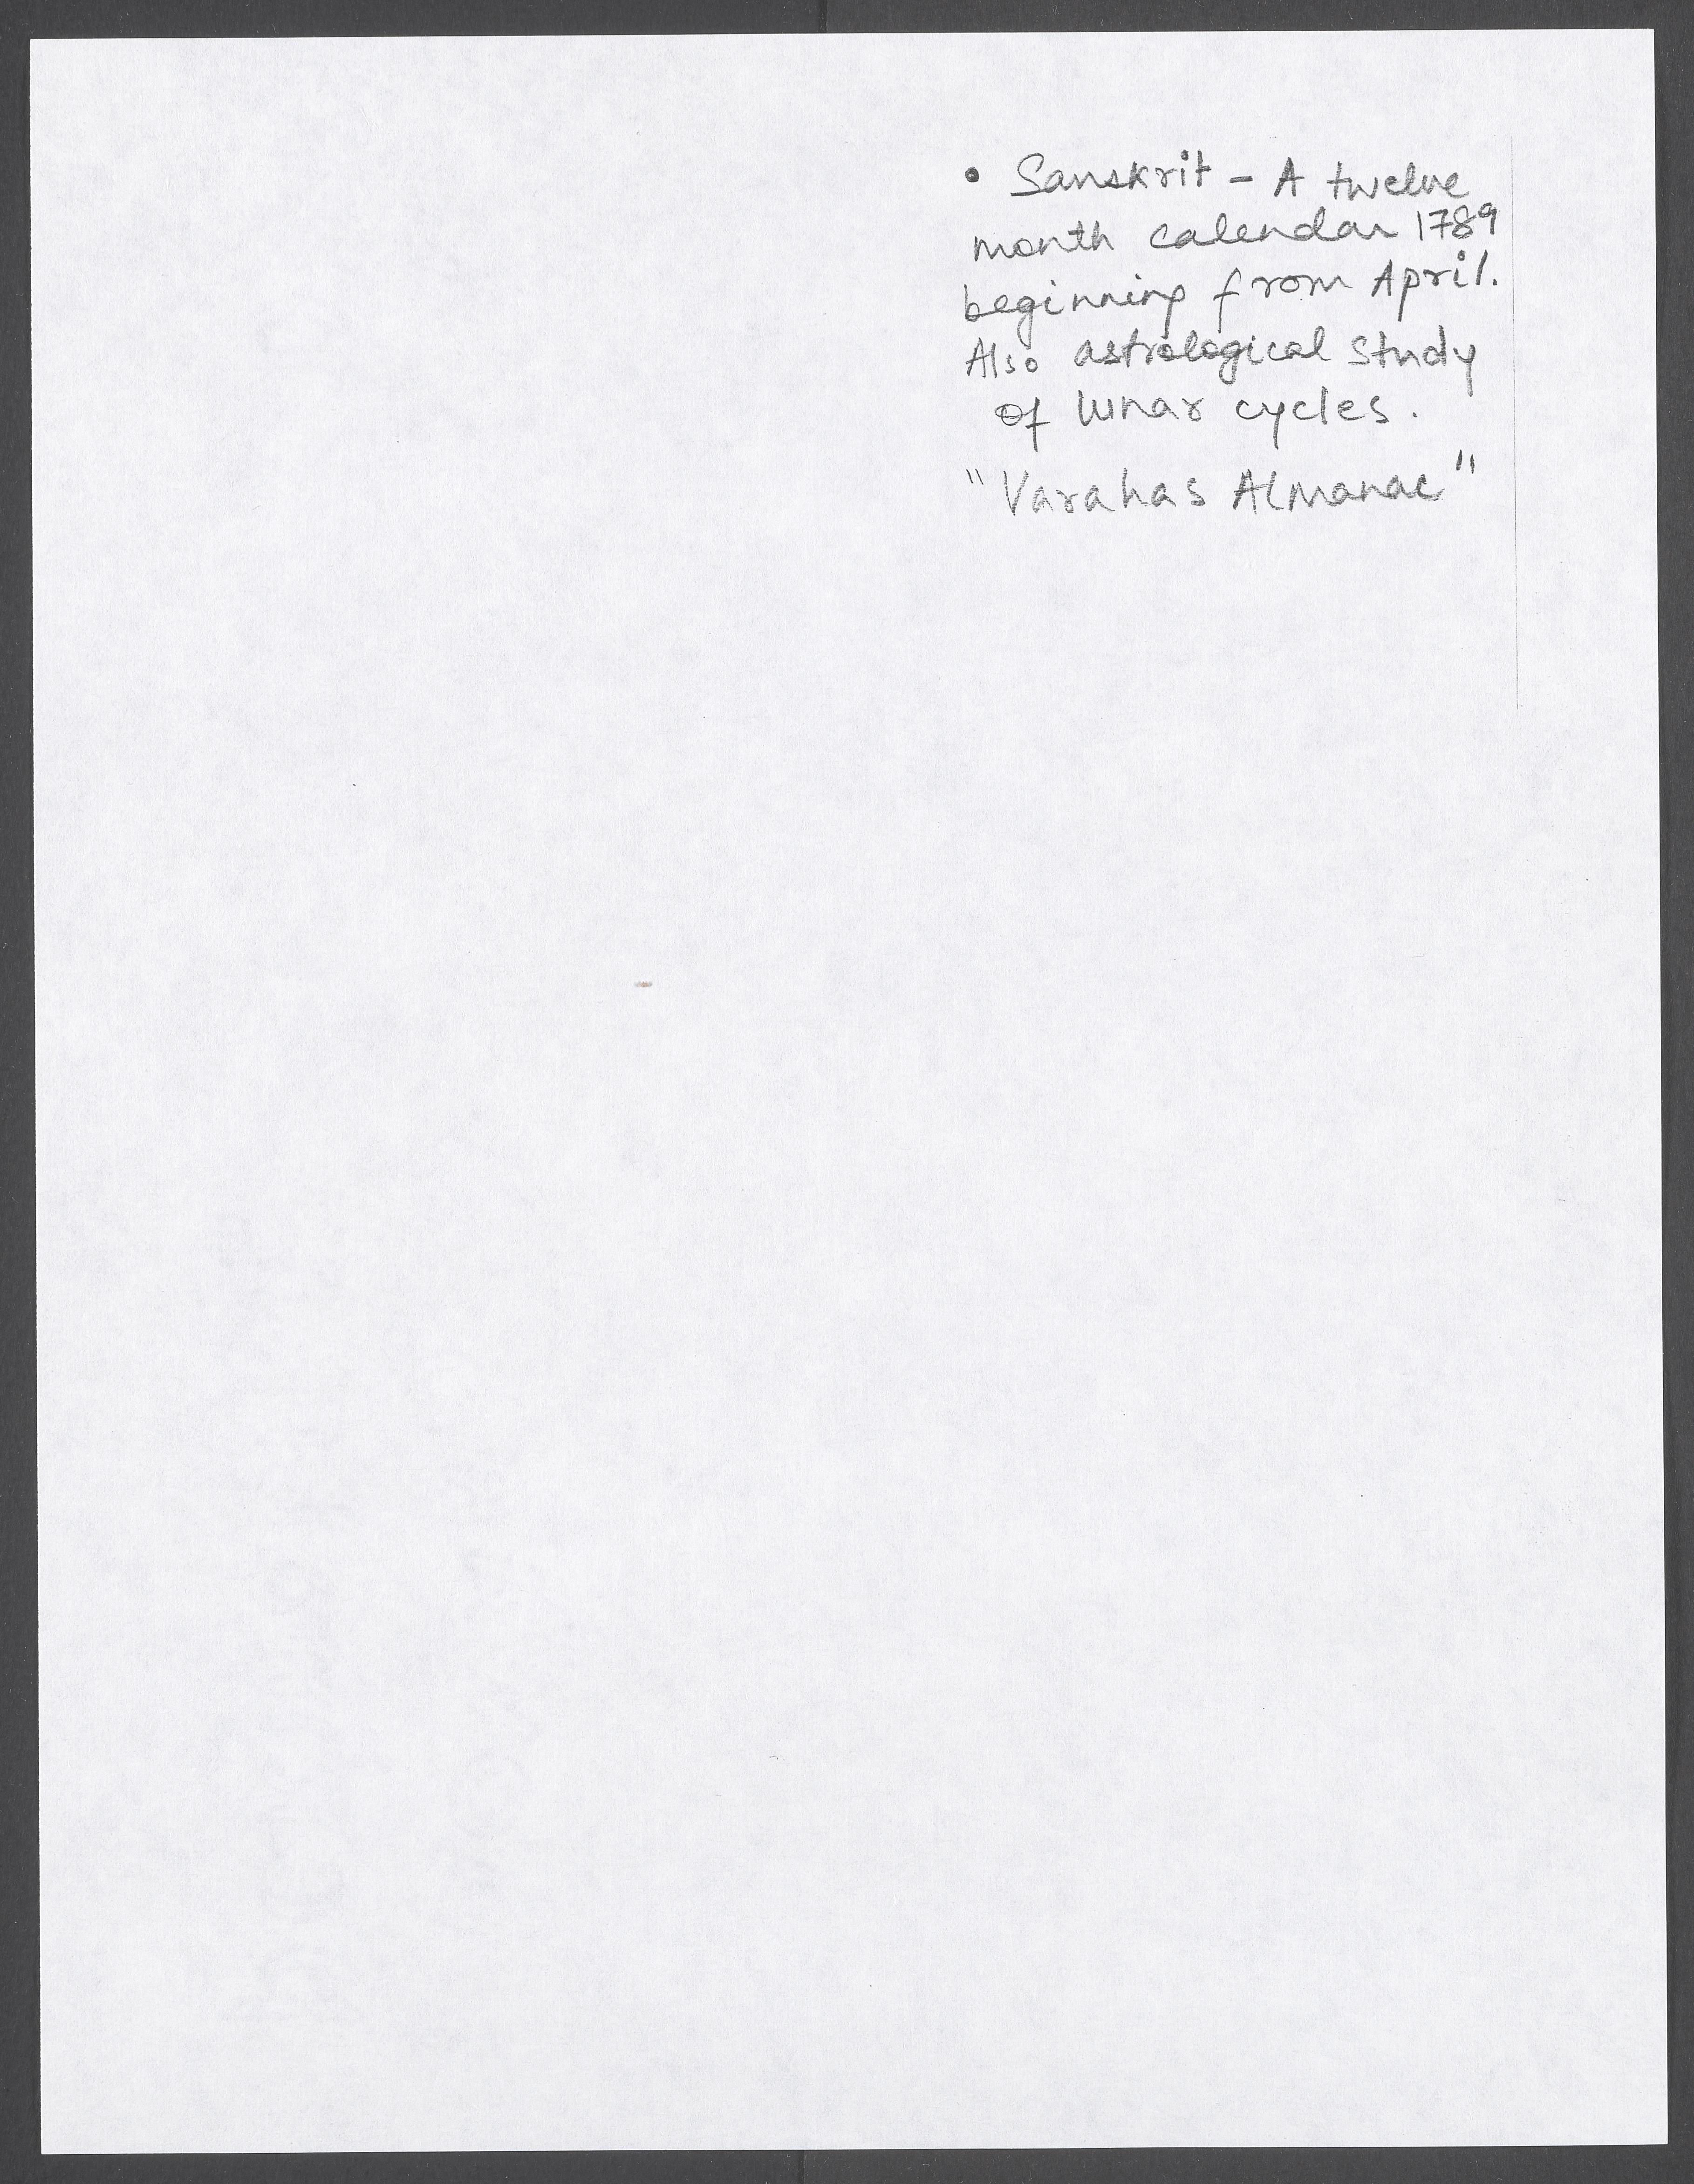 • Sanskrit - A twelve
month calendar 1789
beginning from April.
Also astrological study
of lunar cycles.
"Varahas Almanac"